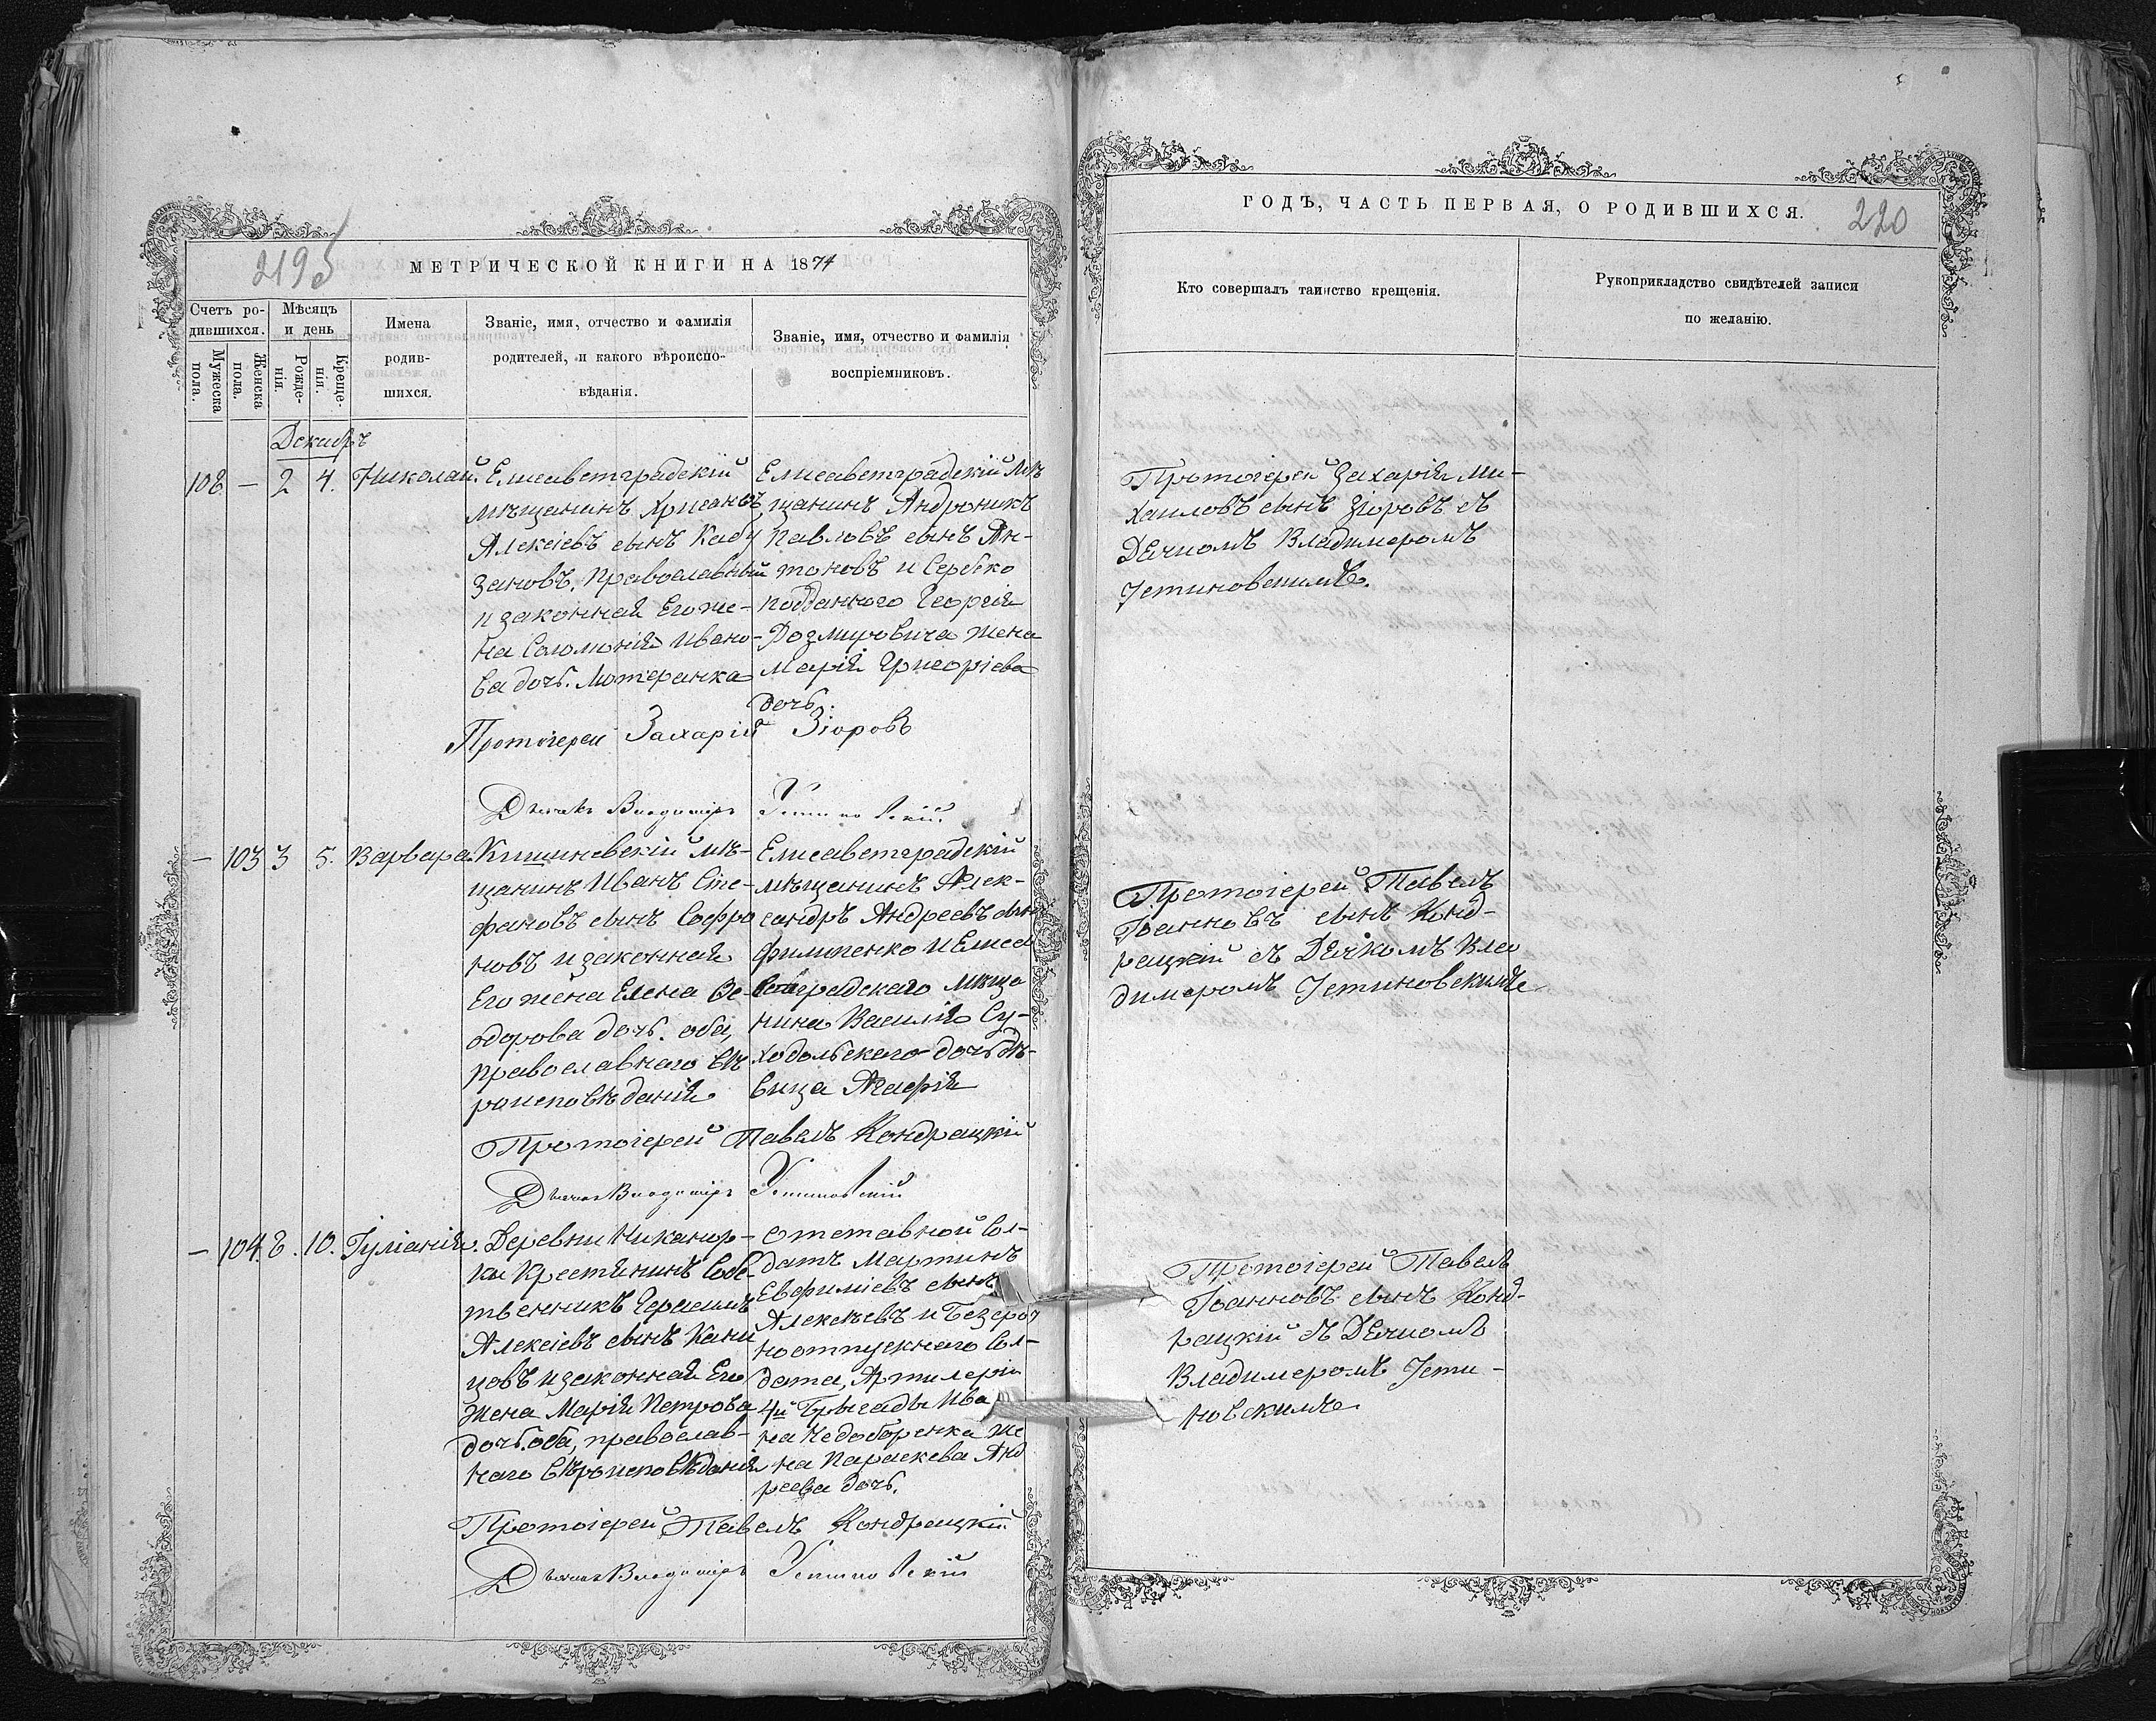 2195
МЕТРИЧЕСКОЙ КНИГИ НА 1874
Счетъ ро-
дившихся.
Мужеска
пола.
Женска
пола.
Мѣсяцъ
и день
Рожде-
нія.
Креще-
нія.
Имена
родив-
шихся.
Званіе, имя, отчество и фамилія
родителей, и какого вѣроиспо-
вѣданія.
Званіе, имя, отчество и фамилія
воспріемниковъ.
Декабрь
108. — 2 4. Николай.
Елисаветградскій
мѣщанинъ
Алексіевъ сынъ
Православный
и законная Его же-
на Соломонія Ивано-
ва дочь. Лютеранка
Елисаветградскій мѣ
щанинъ Андроникъ
Павловъ сынъ Ан-
тоновъ и Сербско
подданного Георгія
жена
Марія Григоріева
дочь.
Протоіерей Захарій Зіоровъ
Дьячокъ Владиміръ Устиновскій
— 103 3 5. Варвара
Кишиневскій мѣ-
щанинъ Иванъ Сте-
фановъ сынъ Софро
новъ и законная
Его жена Елена Ѳе-
одорова дочь. оба,
православнаго вѣ
роисповѣданія
Елисаветградскій
мѣщанинъ Алек-
сандръ Андреевъ сынъ
Филипенко и Елиса
ветградскаго мѣща
нина Василія Су-
ходольскаго дочь дѣ-
вица Агафія
Протоіерей Павелъ Кондрацкій
Дьячокъ Владиміръ Устиновскій
— 104. 8. 10. Іуліанія.
Деревни Никанор-
ки Крестьянинъ Собс-
твенникъ Герасимъ
Алексіевъ сынъ
и законная Его
жена Марія Петрова
дочь. оба, православ-
наго вѣроисповѣданія
Отставной Сол-
датъ Мартинъ
Евфиміевъ сынъ
Алексѣевъ и Безсроч
ноотпускного Сол-
дата, Артилеріи
4й Брыгады Ива
на Недоборенка же
на Параскева Анд
реева дочь.
Протоіерей Павелъ Кондрацкій
Дьячокъ Владиміръ Устиновскій
ГОДЪ, ЧАСТЬ ПЕРВАЯ, О РОДИВШИХСЯ.
220
Кто совершалъ таинство крещенія.
Рукоприкладство свидѣтелей записи
по желанію.
Протоіерей Захарія Ми-
хаиловъ сынъ Зіоровъ съ
Дячкомъ Владимеромъ
Устиновскимъ.
Протоіерей Павелъ
Іоанновъ сынъ Конд-
рацкій съ Дячкомъ Вла
димеромъ Устиновскимъ
Протоіерей Павелъ
Іоанновъ сынъ Конд-
рацкій съ Дячкомъ
Владимеромъ Усти-
новскимъ